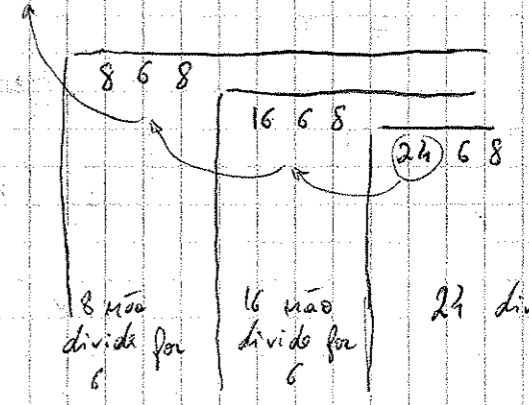 8 6 8
16 6 8
24 6 8
8 não
divide por
6
16 não
divide por
6
24 div